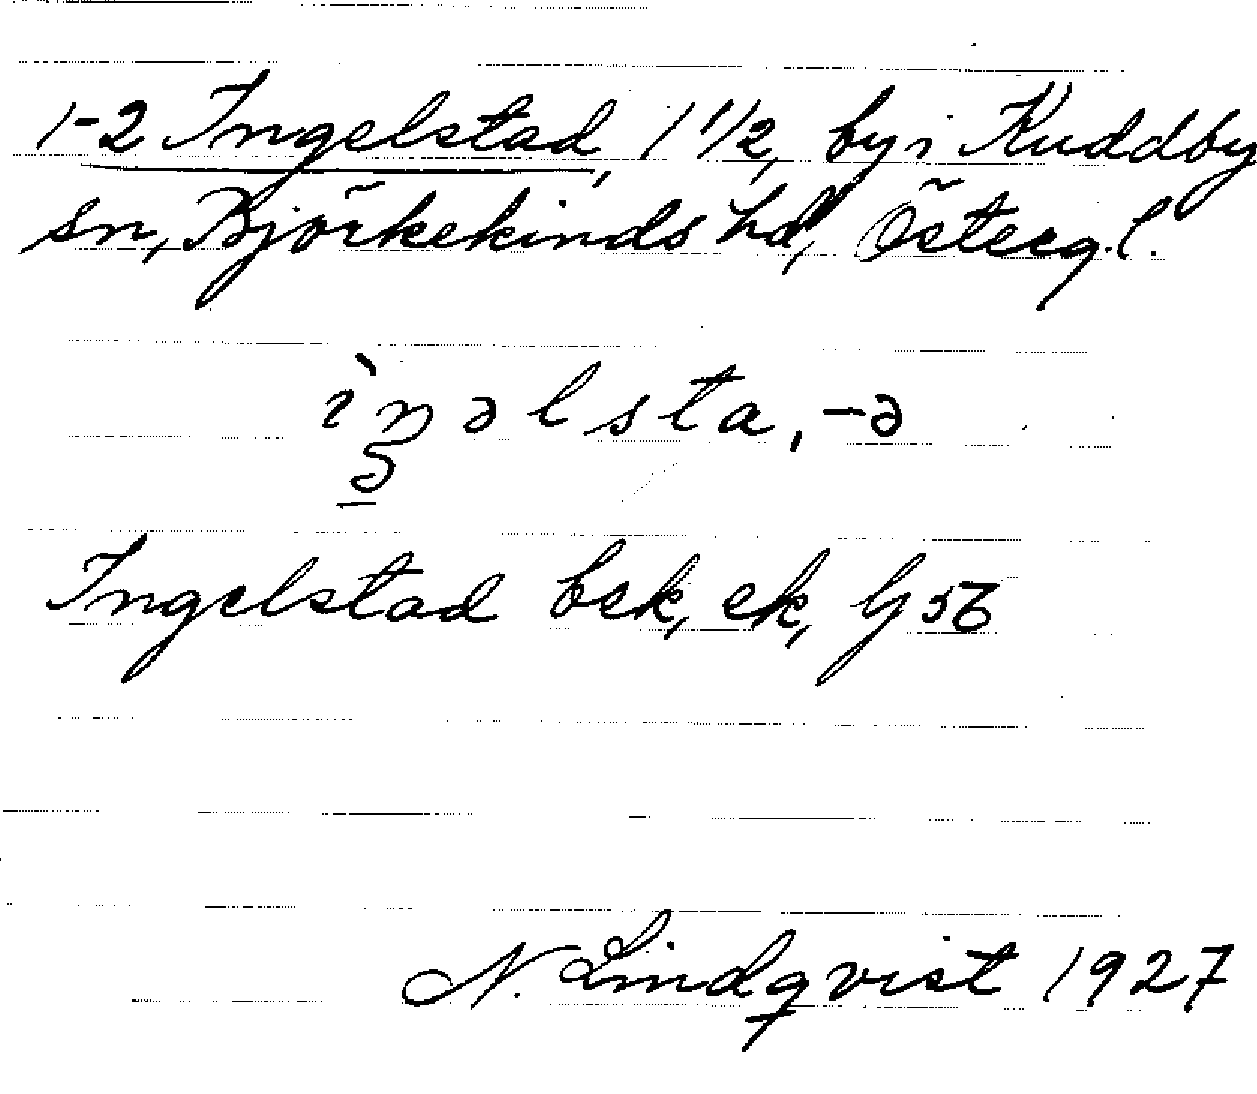 1-2 Ingelstad, 1 1/2, by i Kuddby
sn, Björkekinds hd, Österg.l.
ìŋəlsta, -ə
Ingelstad bek, ek, G 56
N. Lindqvist 1927